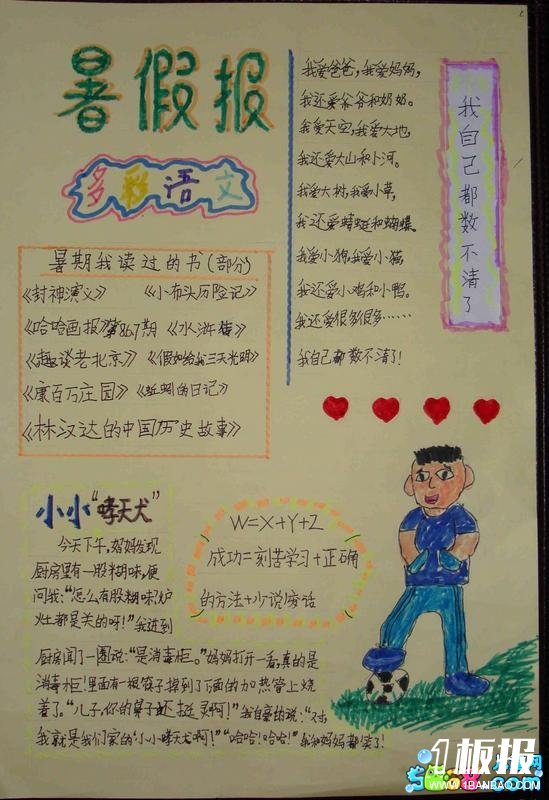 暑假报
多彩语文
暑期我读过的书(部分)
《封神演义》 《小布头历险记》
《哈哈画报》第867期 《水浒传》
《趣谈老北京》 《假如给我三天光明》
《康百万庄园》 《蚯蚓的日记》
《林汉达的中国历史故事》
我爱爸爸,我爱妈妈,
我还爱爷爷和奶奶。
我爱天空,我爱大地,
我还爱大山和小河。
我爱大树,我爱小草,
我还爱蜻蜓和蝴蝶。
我爱小狗,我爱小猫
我还爱小鸡和小鸭。
我还爱很多很多……
我自己都数不清了!
我自己都数不清了
小小“哮天犬”
今天下午,妈妈发现
厨房里有一股糊味,便
问我:“怎么有股糊味?炉
灶都是关的呀!”我进到
厨房闻了一圈说:“是消毒柜。”妈妈打开一看,真的是
消毒柜!里面有一根筷子掉到了下面的加热管上烧
着了。“儿子,你的鼻子还挺灵啊!”我自豪的说:“对
我就是我们家的‘小小哮天犬啊!”“哈哈!哈哈!”我和妈妈都笑了!
W=X+Y+Z
成功=刻苦学习+正确
的方法+少说废话
1板报
WWW.1BANBAO.COM